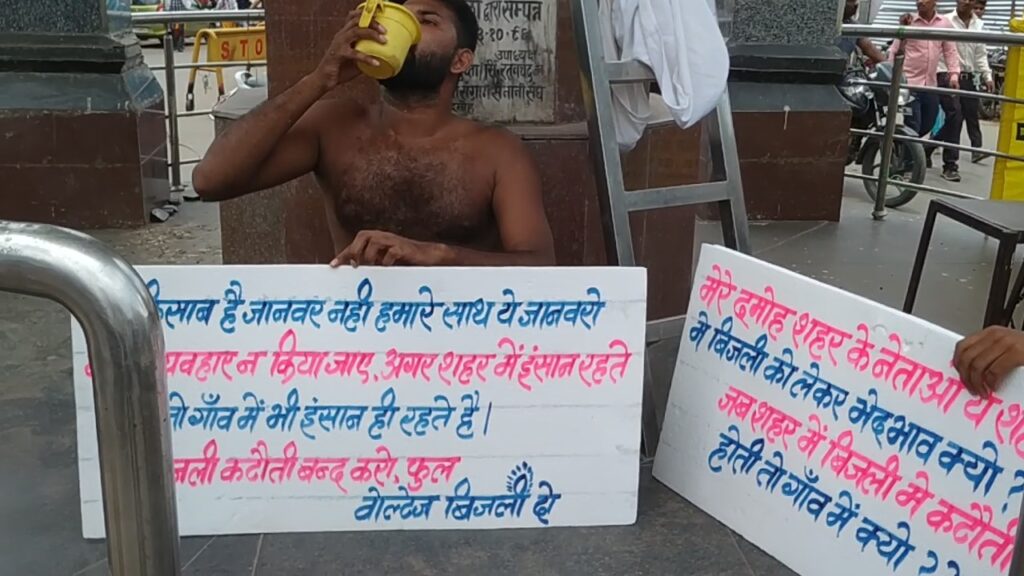 STO
द्वारा सम्पन्न
किसान है जानवर नही हमारे साथ ये जानवरो
व्यवहार न किया जाए, अगर शहर में इंसान रहते
तो गाँव में भी इंसान ही रहते है।
बिजली कटौती बन्द करो, फुल
वोल्टेज बिजली दो
मेरे दमोह शहर के नेताओ
मे बिजली को लेकर भेदभाव क्यो ?
जब शहर में बिजली मे कटौती
होती तो गाँव में क्यो ??